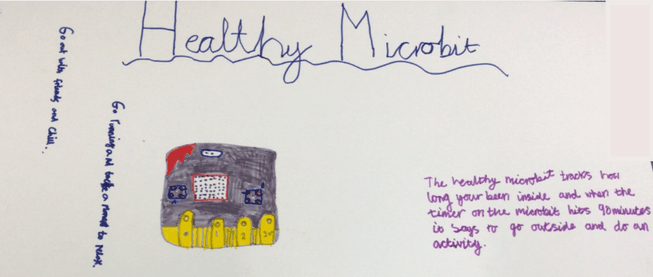 Healthy Microbit
Go out with friends and chill.
Go running and take a moment to relax.
The healthy microbit tracks how
long your been inside and when the
timer on the microbit hits 90 minutes
it says to go outside and do an
activity.